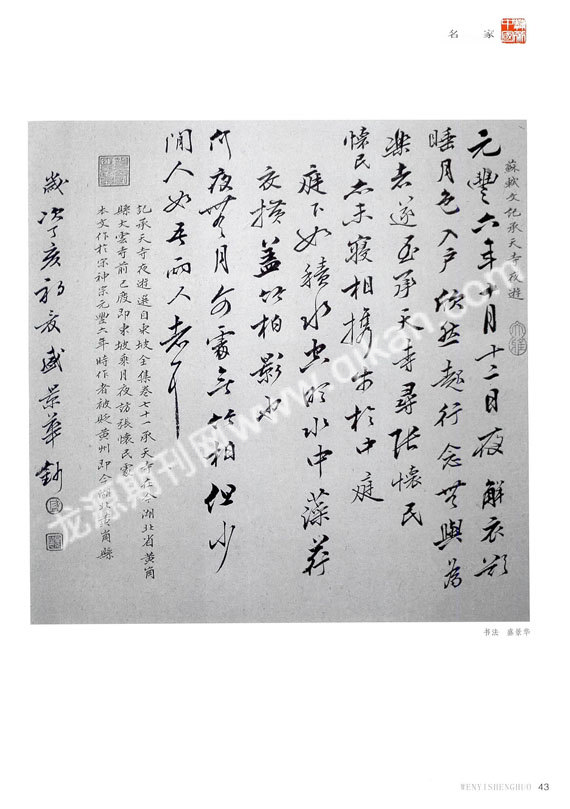 名家
蘇軾文記承天寺夜遊
元豐六年十月十二日夜解衣欲
睡月色入戶欣然起行念無與為
樂者遂至承天寺尋張懷民
懷民亦未寢相攜步於中庭
庭下如積水空明水中藻荇
交橫蓋竹柏影也
何夜無月何處無竹柏但少
閒人如吾兩人者耳
記承天寺夜遊選自東坡全集卷七十一承天寺在今湖北省黃崗
縣大雲寺前已廢即東坡乘月夜訪張懷民處
本文作於宋神宗元豐六年時作者被貶黃州即今湖北黃崗縣
歲次丁亥初夏盛景華
书法 盛景华
WENYISHENGHUO 43
龙源期刊网 www.qikan.com